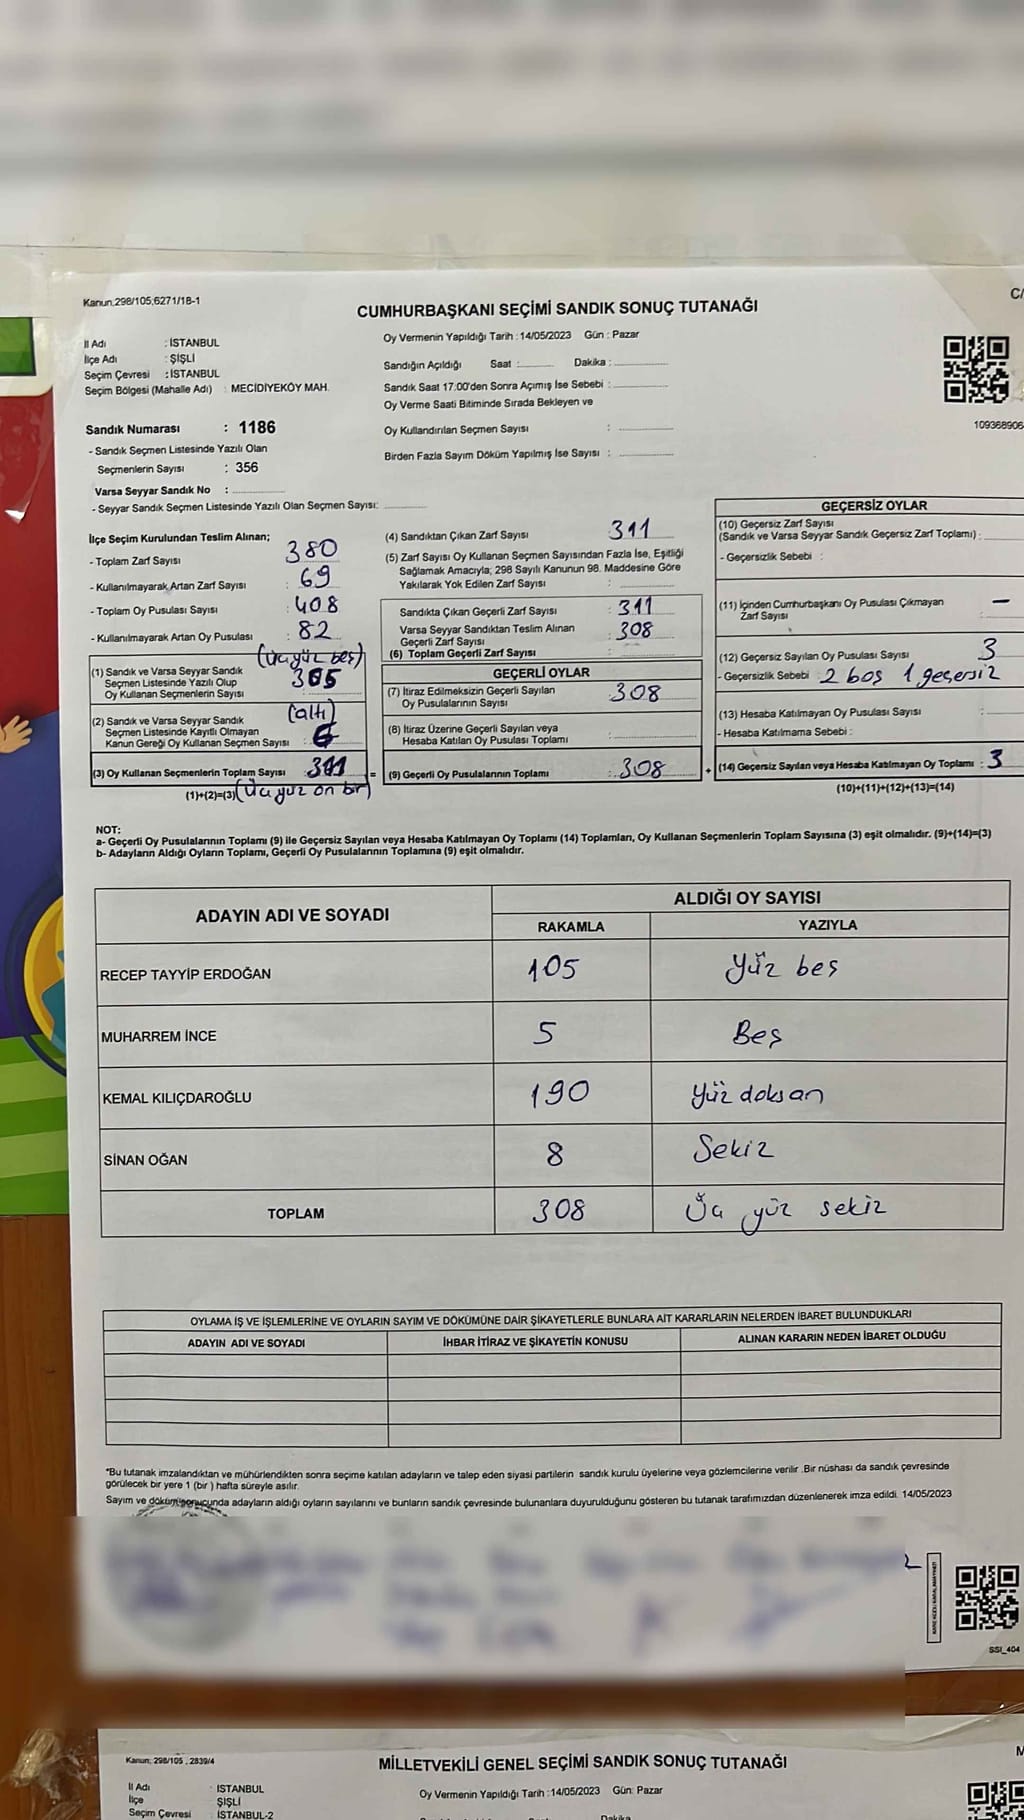 Kanun;298/105;6271/18-1
C/
CUMHURBAŞKANI SEÇİMİ SANDIK SONUÇ TUTANAĞI
İl Adı : İSTANBUL
İlçe Adı : ŞİŞLİ
Seçim Çevresi : İSTANBUL
Seçim Bölgesi (Mahalle Adı) : MECİDİYEKÖY MAH.
Oy Vermenin Yapıldığı Tarih : 14/05/2023 Gün : Pazar
Sandığın Açıldığı Saat : Dakika :
Sandık Saat 17:00'den Sonra Açımış İse Sebebi :
Oy Verme Saati Bitiminde Sırada Bekleyen ve
Oy Kullandırılan Seçmen Sayısı :
Birden Fazla Sayım Döküm Yapılmış İse Sayısı :
109368906
Sandık Numarası : 1186
- Sandık Seçmen Listesinde Yazılı Olan
Seçmenlerin Sayısı : 356
Varsa Seyyar Sandık No :
- Seyyar Sandık Seçmen Listesinde Yazılı Olan Seçmen Sayısı:
İlçe Seçim Kurulundan Teslim Alınan;
- Toplam Zarf Sayısı : 380
- Kullanılmayarak Artan Zarf Sayısı : 69
- Toplam Oy Pusulası Sayısı : 408
- Kullanılmayarak Artan Oy Pusulası : 82
(Üçyüz beş)
(1) Sandık ve Varsa Seyyar Sandık
Seçmen Listesinde Yazılı Olup
Oy Kullanan Seçmenlerin Sayısı : 305
(altı)
(2) Sandık ve Varsa Seyyar Sandık
Seçmen Listesinde Kayıtlı Olmayan
Kanun Gereği Oy Kullanan Seçmen Sayısı : 6
(3) Oy Kullanan Seçmenlerin Toplam Sayısı : 311 =
(1)+(2)=(3) (Üçyüz on bir)
(4) Sandıktan Çıkan Zarf Sayısı 311
(5) Zarf Sayısı Oy Kullanan Seçmen Sayısından Fazla İse, Eşitliği
Sağlamak Amacıyla; 298 Sayılı Kanunun 98. Maddesine Göre
Yakılarak Yok Edilen Zarf Sayısı :
Sandıkta Çıkan Geçerli Zarf Sayısı : 311
Varsa Seyyar Sandıktan Teslim Alınan
Geçerli Zarf Sayısı : 308
(6) Toplam Geçerli Zarf Sayısı :
GEÇERLİ OYLAR
(7) İtiraz Edilmeksizin Geçerli Sayılan
Oy Pusulalarının Sayısı : 308
(8) İtiraz Üzerine Geçerli Sayılan veya
Hesaba Katılan Oy Pusulası Toplamı :
(9) Geçerli Oy Pusulalarının Toplamı : 308 +
GEÇERSİZ OYLAR
(10) Geçersiz Zarf Sayısı
(Sandık ve Varsa Seyyar Sandık Geçersiz Zarf Toplamı) :
- Geçersizlik Sebebi :
(11) İçinden Cumhurbaşkanı Oy Pusulası Çıkmayan
Zarf Sayısı : —
(12) Geçersiz Sayılan Oy Pusulası Sayısı : 3
- Geçersizlik Sebebi : 2 boş 1 geçersiz
(13) Hesaba Katılmayan Oy Pusulası Sayısı :
- Hesaba Katılmama Sebebi :
(14) Geçersiz Sayılan veya Hesaba Katılmayan Oy Toplamı : 3
(10)+(11)+(12)+(13)=(14)
NOT:
a- Geçerli Oy Pusulalarının Toplamı (9) ile Geçersiz Sayılan veya Hesaba Katılmayan Oy Toplamı (14) Toplamları, Oy Kullanan Seçmenlerin Toplam Sayısına (3) eşit olmalıdır. (9)+(14)=(3)
b- Adayların Aldığı Oyların Toplamı, Geçerli Oy Pusulalarının Toplamına (9) eşit olmalıdır.
ADAYIN ADI VE SOYADI
ALDIĞI OY SAYISI
RAKAMLA YAZIYLA
RECEP TAYYİP ERDOĞAN 105 Yüz beş
MUHARREM İNCE 5 Beş
KEMAL KILIÇDAROĞLU 190 Yüz doksan
SİNAN OĞAN 8 Sekiz
TOPLAM 308 Üç yüz sekiz
OYLAMA İŞ VE İŞLEMLERİNE VE OYLARIN SAYIM VE DÖKÜMÜNE DAİR ŞİKAYETLERLE BUNLARA AİT KARARLARIN NELERDEN İBARET BULUNDUKLARI
ADAYIN ADI VE SOYADI İHBAR İTİRAZ VE ŞİKAYETİN KONUSU ALINAN KARARIN NEDEN İBARET OLDUĞU
*Bu tutanak imzalandıktan ve mühürlendikten sonra seçime katılan adayların ve talep eden siyasi partilerin sandık kurulu üyelerine veya gözlemcilerine verilir .Bir nüshası da sandık çevresinde
görülecek bir yere 1 (bir ) hafta süreyle asılır.
Sayım ve döküm sonucunda adayların aldığı oyların sayılarını ve bunların sandık çevresinde bulunanlara duyurulduğunu gösteren bu tutanak tarafımızdan düzenlenerek imza edildi. 14/05/2023
SSI_404
Kanun; 298/105 , 2839/4
M
MİLLETVEKİLİ GENEL SEÇİMİ SANDIK SONUÇ TUTANAĞI
İl Adı : İSTANBUL
İlçe : ŞİŞLİ
Seçim Çevresi : İSTANBUL-2
Oy Vermenin Yapıldığı Tarih :14/05/2023 Gün: Pazar
Dakika